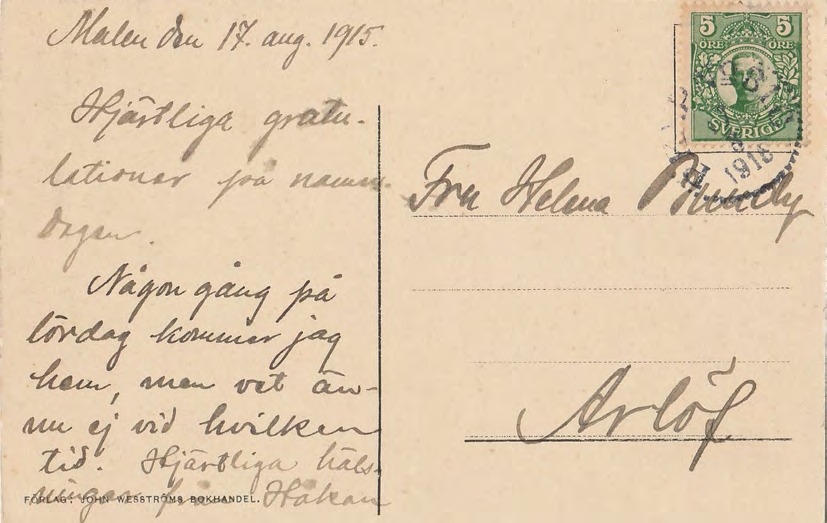 Malen den 17. aug. 1915.
Hjärtliga gratu-
lationer på namns-
dagen.
Någon gång på
lördag kommer jag
hem, men vet än-
nu ej vid hvilken
tid. Hjärtliga häls-
ningar från Håkan
FÖRLAG: JOHN WESSTRÖMS BOKHANDEL.
5 5
ÖRE ÖRE
SVERIGE
Fru Helena
Arlöf